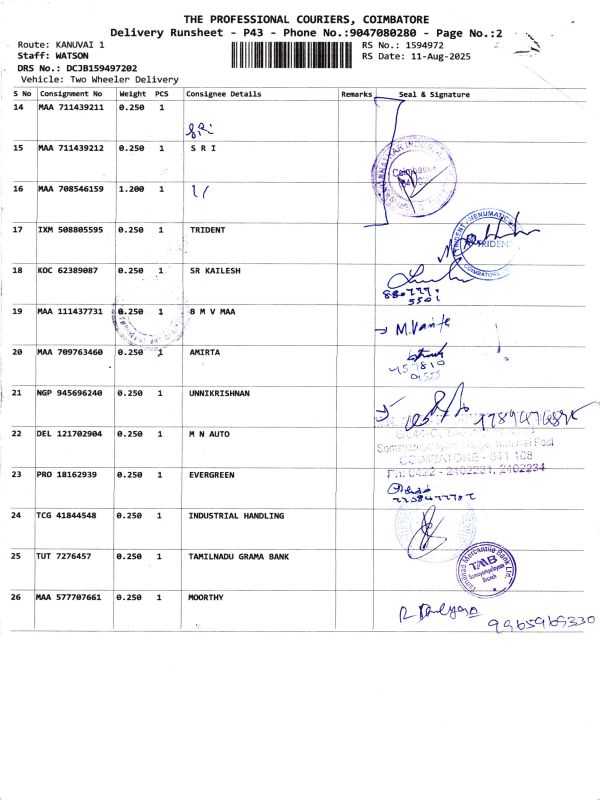 THE PROFESSIONAL COURIERS, COIMBATORE
Delivery Runsheet - P43 - Phone No.:9047080280 - Page No.:2
Route: KANUVAI 1
RS No.: 1594972
Staff: WATSON
RS Date: 11-Aug-2025
DRS No.: DCJB159497202
Vehicle: Two Wheeler Delivery
S No Consignment No Weight PCS Consignee Details Remarks Seal & Signature
14 MAA 711439211 0.250 1
Sri
15 MAA 711439212 0.250 1 S R I
16 MAA 708546159 1.200 1
17 IXM 508805595 0.250 1 TRIDENT
TRIDENT
COIMBATORE
18 KOC 62389087 0.250 1 SR KAILESH
19 MAA 111437731 0.250 1 B M V MAA
20 MAA 709763460 0.250 1 AMIRTA
21 NGP 945696240 0.250 1 UNNIKRISHNAN
22 DEL 121702904 0.250 1 M N AUTO
COIMBATORE - 641 108
Ph: 0422 - 2402231, 2402234
23 PRO 18162939 0.250 1 EVERGREEN
24 TCG 41844548 0.250 1 INDUSTRIAL HANDLING
25 TUT 7276457 0.250 1 TAMILNADU GRAMA BANK
Tamilnad Mercantile Bank Ltd.
TMB
Branch
26 MAA 577707661 0.250 1 MOORTHY
9965969330